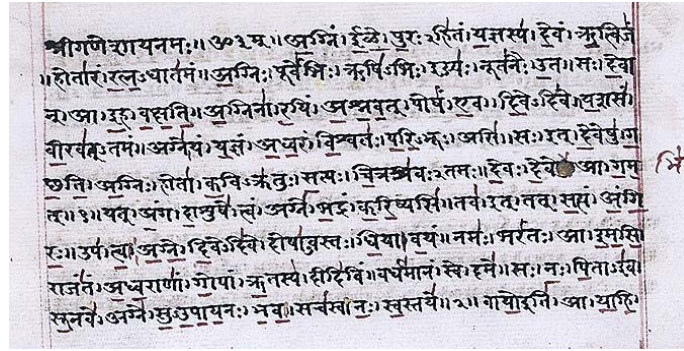 श्रीगणेशायनमः॥ ॐ३म्॥ अ॒ग्निं। ई॒ळे॒। पु॒रः२हि॑तं। य॒ज्ञस्य॑। दे॒वं। ऋ॒त्विजं॑
॥होता॑रं। र॒त्न॒ऽधात॑मं॥ अ॒ग्निः। पूर्वे॑भिः। ऋषि॑ऽभिः। ईड्यः॑। नूत॑नैः। उ॒त॥ सः। दे॒वा
न्। आ। इ॒ह। व॒क्ष॒ति॒॥ अ॒ग्निना॑। र॒यिं। अ॒श्न॒व॒त्। पोषं॑। ए॒व। दि॒वेऽदि॑वे॥ य॒शसं॑
वी॒रव॑त्ऽतमं॥ अग्ने॑। यं। य॒ज्ञं। अ॒ध्व॒रं। वि॒श्वतः॑। प॒रि॒ऽभूः। असि॑॥ सः। इत्। दे॒वेषु॑। ग॒
च्छ॒ति॒। अ॒ग्निः। होता॑। क॒विऽक्र॑तुः। स॒त्यः। चि॒त्रश्र॑वः२तमः॥ दे॒वः। दे॒वे आ। ग॒म॒
त्॥१॥ यत्। अं॒ग। दा॒शुषे॑। त्वं। अग्ने॑। भ॒द्रं। क॒रि॒ष्यसि॑॥ तव॑। इत्। तत्। स॒त्यं। अं॒गि॒
रः॒॥ उप॑। त्वा॒। अ॒ग्ने॒। दि॒वेदि॑वे। दोषा॑ऽवस्तः। धि॒या। व॒यं॥ नमः॑। भरं॑तः। आ। इ॒म॒सि॒॥
राजं॑तं। अ॒ध्व॒राणां॑। गो॒पां। ऋ॒तस्य॑। दीदि॑विं॥ वर्ध॑मानं। स्वे। दमे॑॥ सः। नः॒। पि॒ताऽइ॑व
सू॒नवे॑। अग्ने॑। सु॒ऽउ॒पा॒य॒नः। भ॒व॒॥ सच॑स्व। नः॒। स्व॒स्तये॑॥२॥ वायो॒इति॑। आ। या॒हि॒।